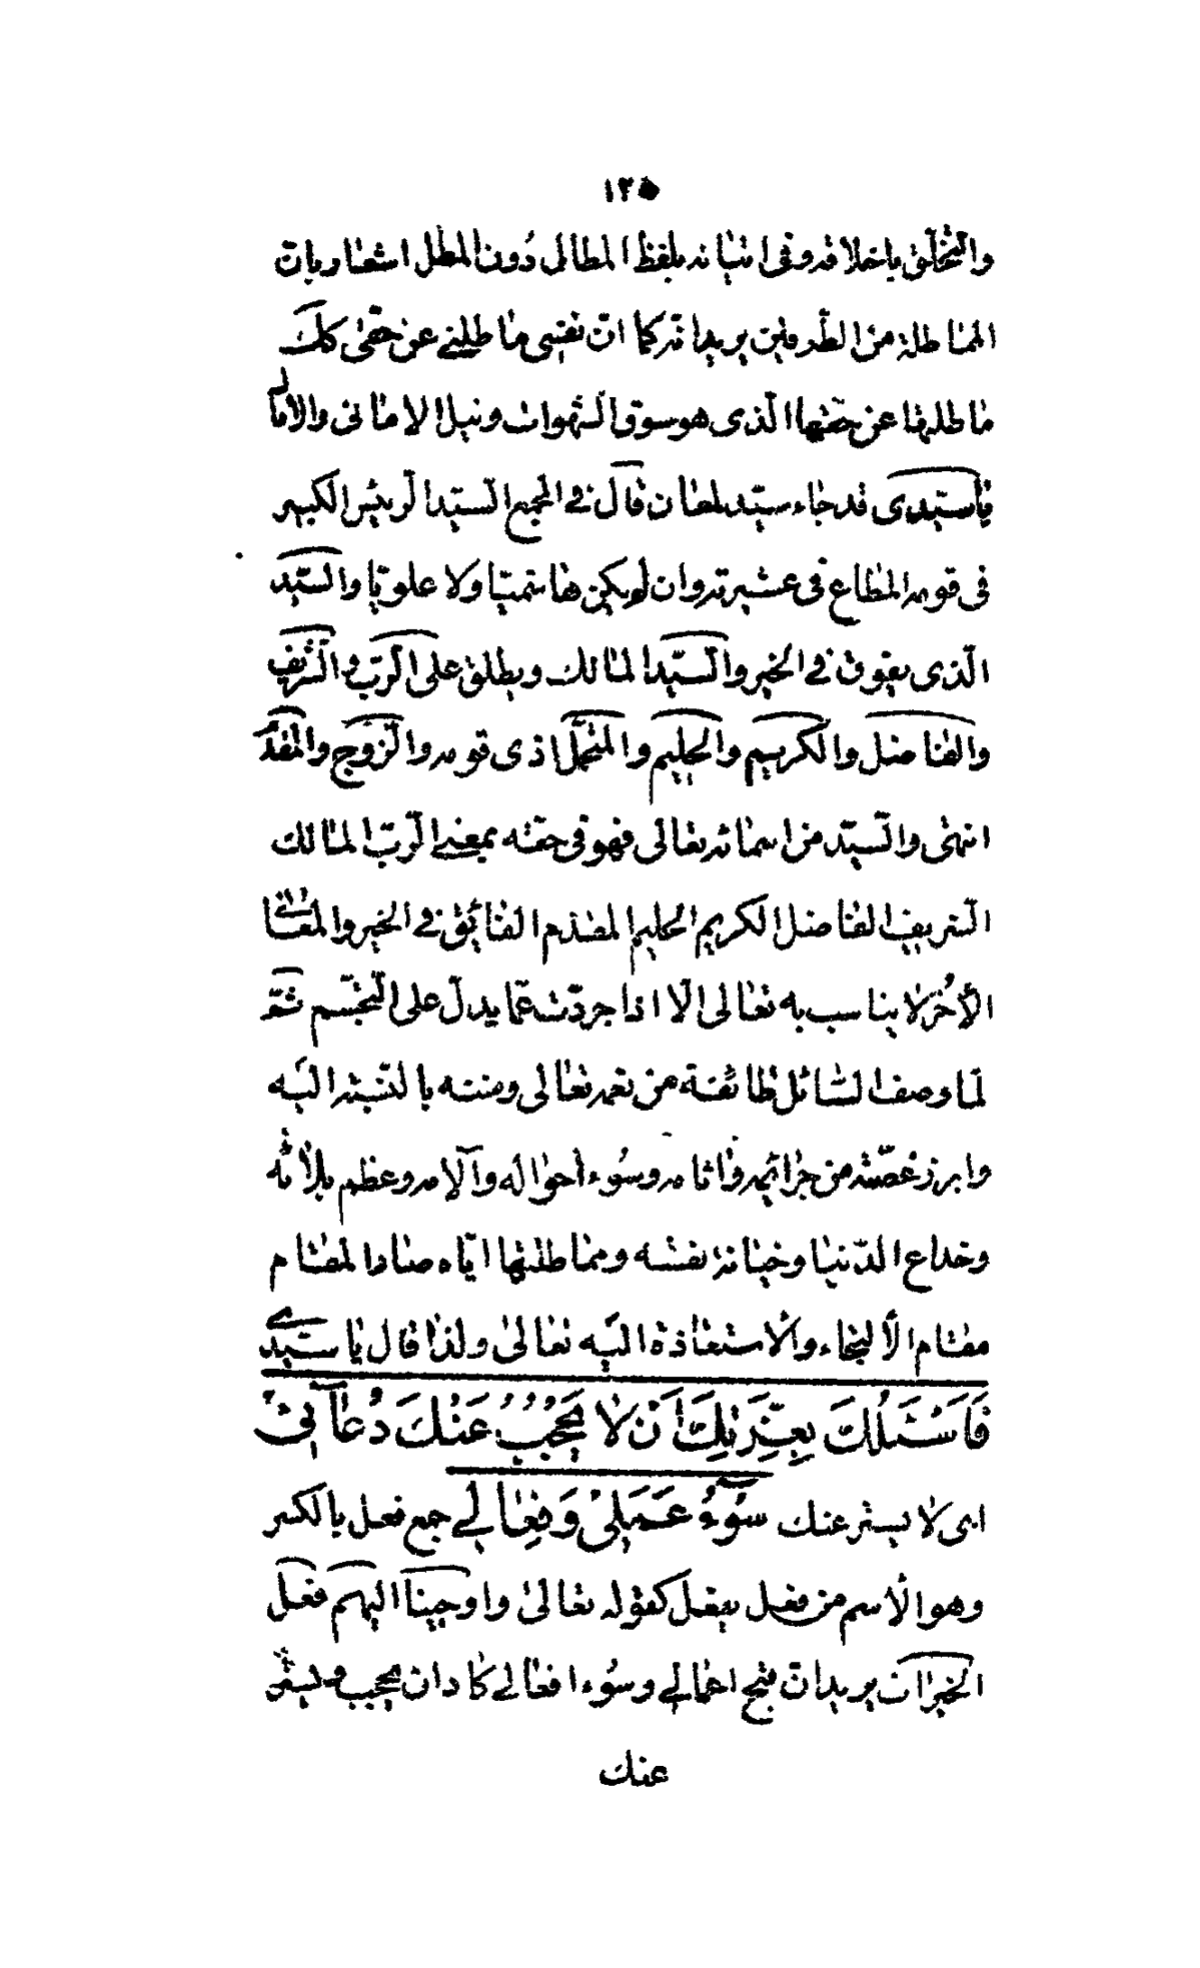 ١٢٥
والتخلّق باخلاقه وفى اتيانه بلفظ المطالى دون المطل اشعار بانّ
المماطلة من الطّرفين يريد انّه كما انّ نفسى ماطلنى عن حقّى كك
ماطلتها عن حقّها الّذى هو سوق الشّهوات ونيل الامانى والامالى
يا سيّدى قد جاء سيّد لمعان قال فى المجمع السّيد الرّئيس الكبير
فى قومه المطاع فى عشيرته وان لم يكن هاشميّا ولا علويّا والسّيّد
الّذى يفوق فى الخير والسّيّد المالك ويطلق على الرّب والشّريف
والفاضل والكريم والحليم والمتحمّل اذى قومه والزّوج والمقدّم
انتهى والسّيّد من اسمائه تعالى فهو فى حقّه بمعنى الرّبّ المالك
الشريف الفاضل الكريم الحليم المقدّم الفائق فى الخير والمعانى
الأخر لا يناسب به تعالى الّا اذا جردّت عمّا يدلّ على التّجسّم ثمّ
لمّا وصف السّائل طائفة من نعمه تعالى ومننه بالنّسبة اليه
وابرز غصّته من جرائمه واثامه وسوء احواله وآلامه وعظم بلائه
وخداع الدّنيا وخيانة نفسه ومماطلتها ايّاه صار المقام
مقام الألتجاء والاستعاذة اليه تعالى ولذا قال يا سيّدى
فَاَسْئَلُكَ بِعِزَّتِكَ اَنْ لا يَحْجُبَ عَنْكَ دُعآئى
اى لا يستر عنك سُوٓءُ عَمَلى وَفِعالى جمع فعل بالكسر
وهو الاسم من فعل يفعل كقوله تعالى واوحينا اليهم فعل
الخيرات يريد انّ قبح اعمالى وسوء افعالى كاد ان يحجب ويستر
عنك